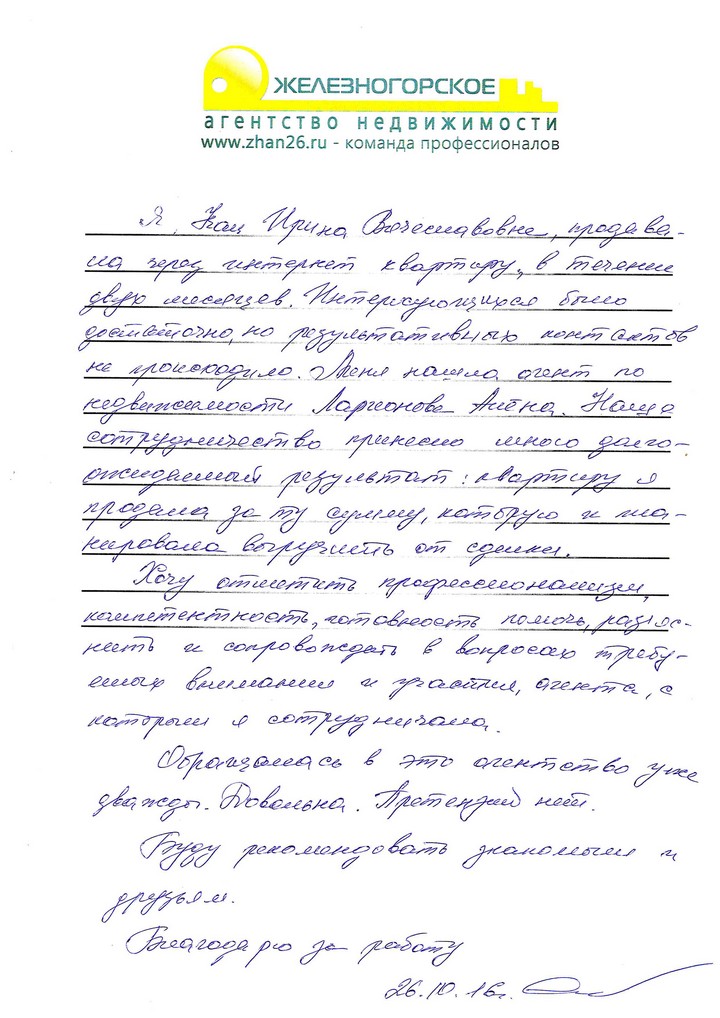 ЖЕЛЕЗНОГОРСКОЕ
агентство недвижимости
www.zhan26.ru - команда профессионалов
Я, Кац Ирина Вячеславовна, продава-
ла через интернет квартиру, в течении
двух месяцев. Интересующихся было
достаточно, но результативных контактов
не происходило. Меня нашла агент по
недвижимости Ларионова Алёна. Наше
сотрудничество принесло много долго-
ожидаемый результат: квартиру я
продала за ту сумму, которую и пла-
нировала выручить от сделки.
Хочу отметить профессионализм,
компетентность, готовность помочь, разъяс-
нить и сопровождать в вопросах требу-
емых внимания и участия, агента, с
которым я сотрудничала.
Обращалась в это агентство уже
дважды. Довольна. Претензий нет.
Буду рекомендовать знакомым и
друзьям.
Благодарю за работу
26.10.16г.